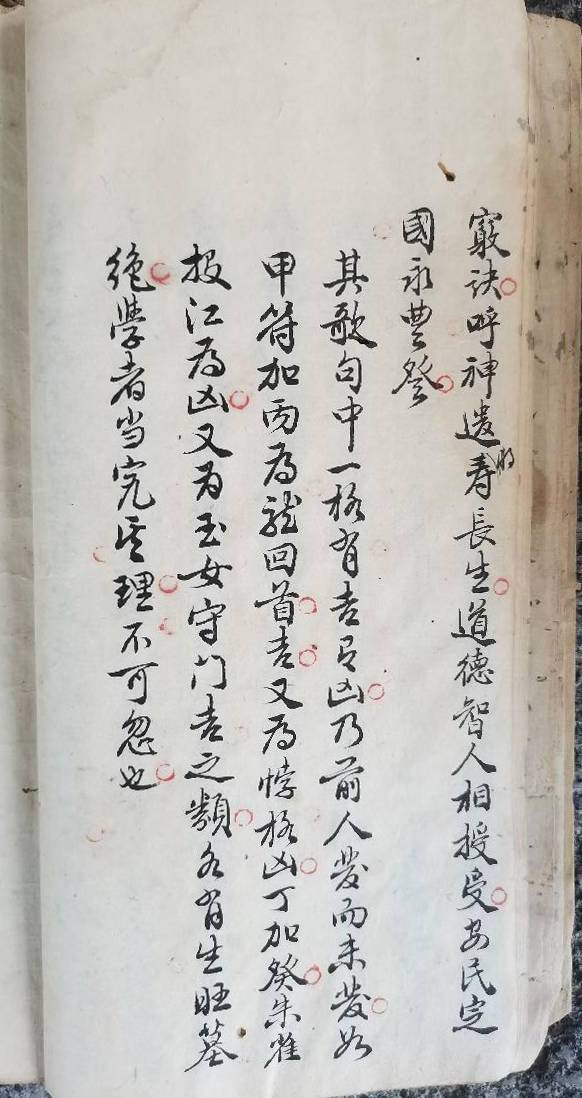 竅訣呼神遣将寿長生道德智人相授受安民定
國永豊登
其歌句中一格有吉有凶乃前人發而未發如
甲符加丙為龍回首吉又為悖格凶丁加癸朱雀
投江為凶又為玉女守门吉之類各有生旺墓
絶學者当究其理不可忽也